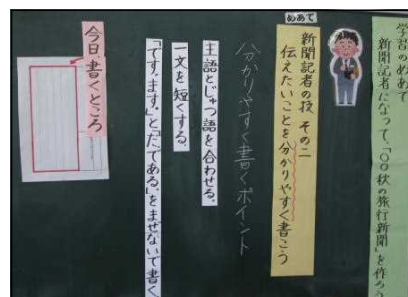 学習のめあて
新聞記者になって、「○○秋の旅行新聞」を作ろう
めあて
新聞記者の技 その二
伝えたいことを分かりやすく書こう
分かりやすく書くポイント
主語とじゅつ語を合わせる。
一文を短くする。
「です。ます。」と「だ。である。」をまぜないで書く
今日、書くところ